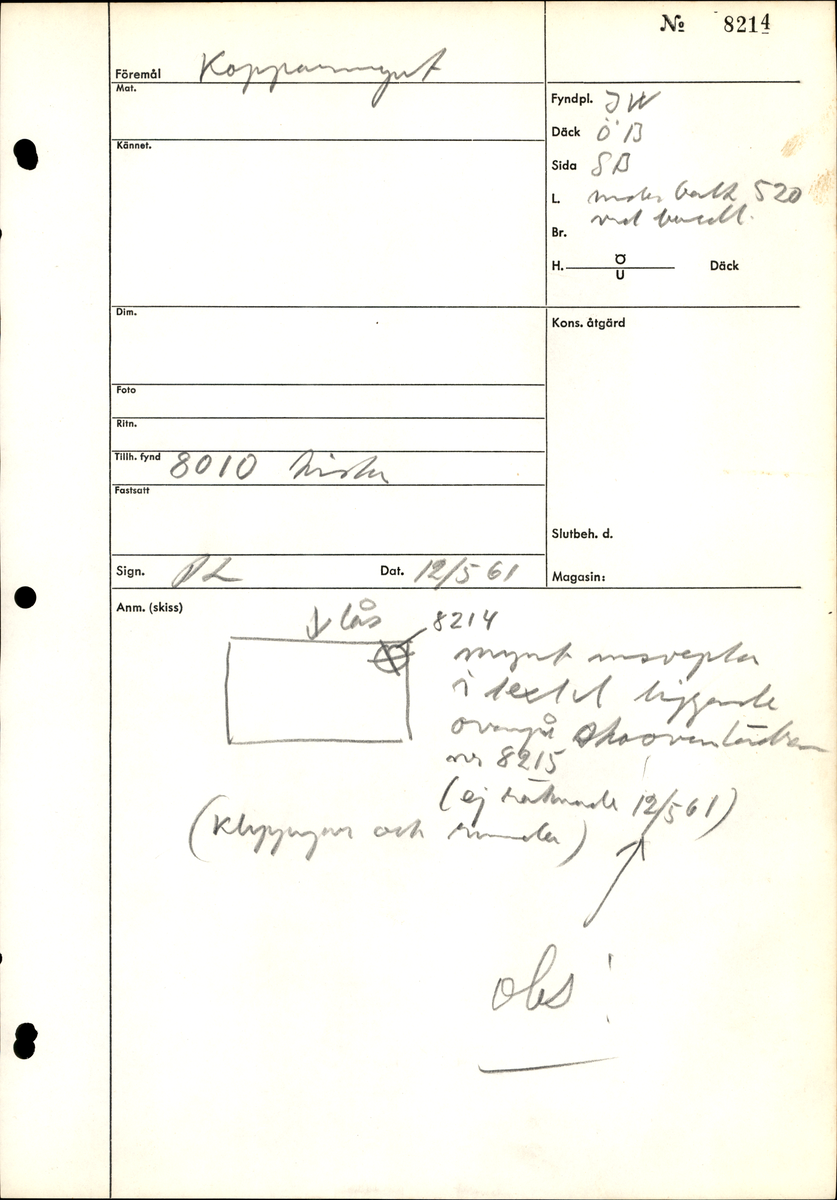 № 8214
Föremål Kopparmynt
Mat.
Kännet.
Fyndpl. JW
Däck ÖB
Sida SB
L. under balk 520
Br. vid
H. Ö U Däck
Dim.
Kons. åtgärd
Foto
Ritn.
Tillh. fynd 8010 kista
Fastsatt
Slutbeh. d.
Sign. PL Dat. 12/5 61
Magasin:
Anm. (skiss)
↓ lås 8214
mynt insvepta
i textil liggande
ovanpå skoovanläder
nr 8215
(ej räknade 12/5 61)
(klippingar och runda)
obs!